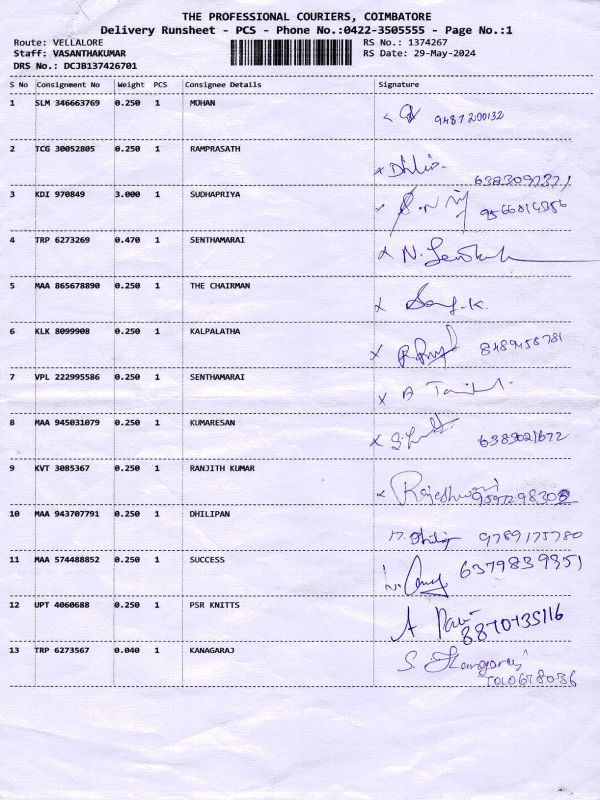 THE PROFESSIONAL COURIERS, COIMBATORE
Delivery Runsheet - PCS - Phone No.:0422-3505555 - Page No.:1
Route: VELLALORE RS No.: 1374267
Staff: VASANTHAKUMAR RS Date: 29-May-2024
DRS No.: DCJB137426701
S No Consignment No Weight PCS Consignee Details Signature
1 SLM 346663769 0.250 1 MOHAN
9487200132
2 TCG 30052805 0.250 1 RAMPRASATH
3 KDI 970849 3.000 1 SUDHAPRIYA
4 TRP 6273269 0.470 1 SENTHAMARAI
5 MAA 865678890 0.250 1 THE CHAIRMAN
6 KLK 8099908 0.250 1 KALPALATHA
8489458781
7 VPL 222995586 0.250 1 SENTHAMARAI
8 MAA 945031079 0.250 1 KUMARESAN
6389021672
9 KVT 3085367 0.250 1 RANJITH KUMAR
Rajeshwari
10 MAA 943707791 0.250 1 DHILIPAN
9789175780
11 MAA 574488852 0.250 1 SUCCESS
6379839951
12 UPT 4060688 0.250 1 PSR KNITTS
8870735116
13 TRP 6273567 0.040 1 KANAGARAJ